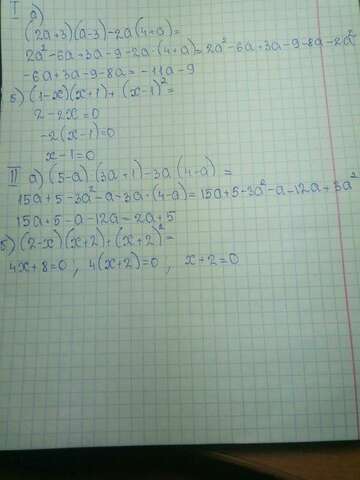 I а)
(2a+3)(a-3)-2a(4+a)=
2a²-6a+3a-9-2a·(4+a)=2a²-6a+3a-9-8a-2a²
-6a+3a-9-8a=-11a-9
б) (1-x)(x+1)+(x-1)²=
2-2x=0
-2(x-1)=0
x-1=0
II а) (5-a)·(3a+1)-3a(4-a)=
15a+5-3a²-a-3a·(4-a)=15a+5-3a²-a-12a+3a²
15a+5-a-12a=2a+5
б) (2-x)(x+2)+(x+2)²=
4x+8=0; 4(x+2)=0, x+2=0